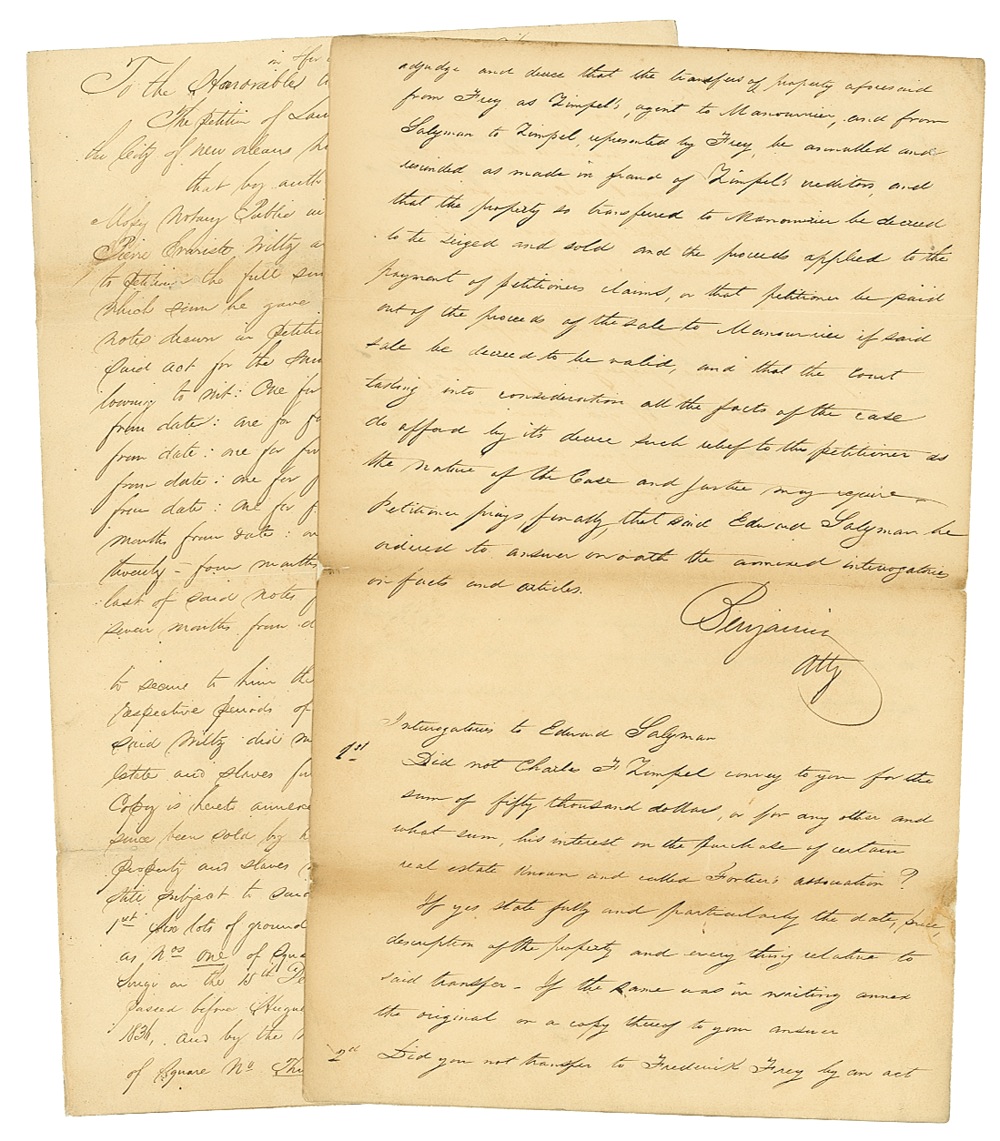 To the Honorables
The petition of
the City of new orleans
that by
Mossy Notary Public in
Pierre Evariste Wiltz
to petitioner the full sum
which sum he gave
notes drawn
said act for the
lowing to wit: One
from date: one for
from date: one for
from date: one for
from date: one for
months from date:
twenty-four months
last of said notes
seven months from
to secure to him the
respective periods of
said Wiltz did
estate and slaves
Copy is hereto
since been sold by
property and slaves
subject to said
1st lots of ground
as Nos one of
on the 15th
passed before
1836, and by the
of Square No
adjudge and decree that the transfers of property aforesaid
from Frey as Zimpel's agent to Manouvrier, and from
Salzman to Zimpel, represented by Frey, be annulled and
rescinded as made in fraud of Zimpel's creditors, and
that the property so transferred to Manouvrier be decreed
to be seized and sold and the proceeds applied to the
payment of petitioners claims, or that petitioner be paid
out of the proceeds of the sale to Manouvrier if said
sale be decreed to be valid, and that the Court
taking into consideration all the facts of the case
do afford by its decree such relief to the petitioner as
the nature of the Case and Justice may require
Petitioner prays finally that said Edward Salzman be
ordered to answer on oath the annexed interrogatories
on facts and articles.
Benjamin
Atty
Interrogatories to Edward Salzman
1st Did not Charles F Zimpel convey to you for the
sum of fifty thousand dollars, or for any other and
what sum, his interest on the purchase of certain
real estate known and called Fortier's association?
If yes state fully and particularly the date, price
description of the property and every thing relative to
said transfer - If the same was in writing annex
the original or a copy thereof to your answer
2nd Did you not transfer to Frederick Frey by an act